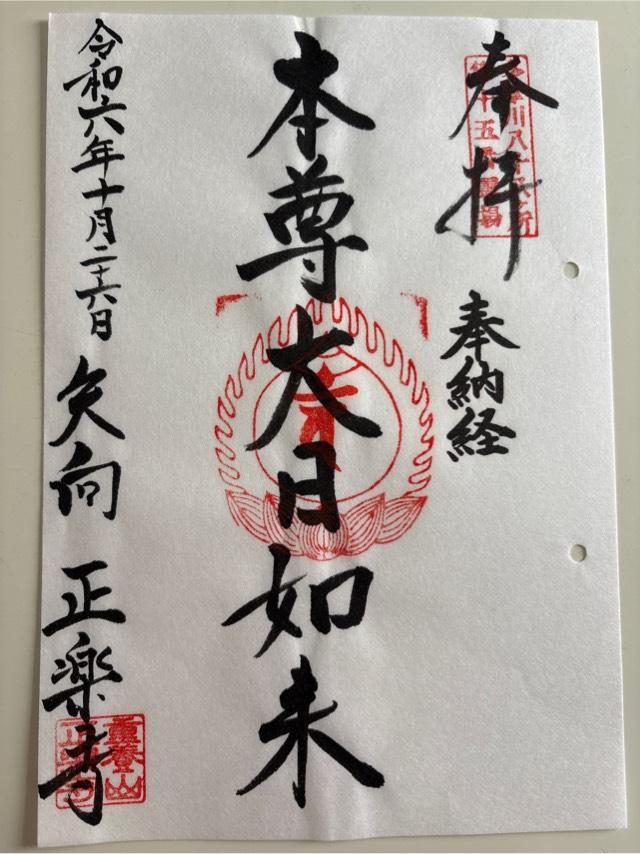 奉拝
奉納経
本尊大日如来
令和六年十月二十六日
矢向 正楽寺